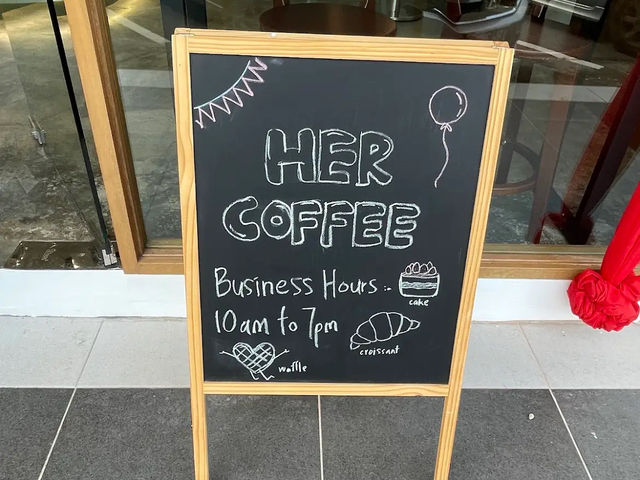 HER
COFFEE
Business Hours :-
cake
10am to 7pm
croissant
waffle